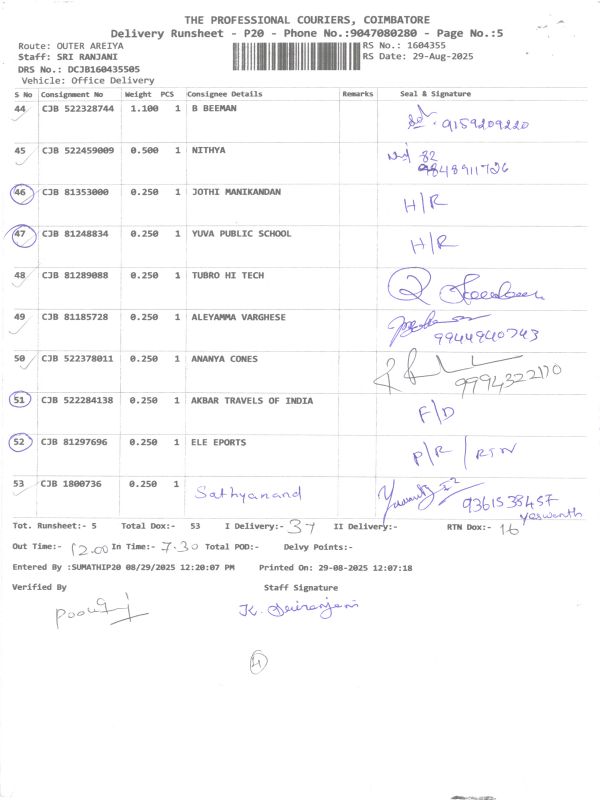 THE PROFESSIONAL COURIERS, COIMBATORE
Delivery Runsheet - P20 - Phone No.:9047080280 - Page No.:5
Route: OUTER AREIYA RS No.: 1604355
Staff: SRI RANJANI RS Date: 29-Aug-2025
DRS No.: DCJB160435505
Vehicle: Office Delivery
S No Consignment No Weight PCS Consignee Details Remarks Seal & Signature
44 CJB 522328744 1.100 1 B BEEMAN 9159209220
45 CJB 522459009 0.500 1 NITHYA
46 CJB 81353000 0.250 1 JOTHI MANIKANDAN H/R
47 CJB 81248834 0.250 1 YUVA PUBLIC SCHOOL H/R
48 CJB 81289088 0.250 1 TUBRO HI TECH
49 CJB 81185728 0.250 1 ALEYAMMA VARGHESE 9944940743
50 CJB 522378011 0.250 1 ANANYA CONES
51 CJB 522284138 0.250 1 AKBAR TRAVELS OF INDIA F/D
52 CJB 81297696 0.250 1 ELE EPORTS P/R / RTN
53 CJB 1800736 0.250 1 Sathyanand yeswanth
Tot. Runsheet:- 5 Total Dox:- 53 I Delivery:- 37 II Delivery:- RTN Dox:- 16
Out Time:- 12.00 In Time:- 7.30 Total POD:- Delvy Points:-
Entered By :SUMATHIP20 08/29/2025 12:20:07 PM Printed On: 29-08-2025 12:07:18
Verified By Staff Signature